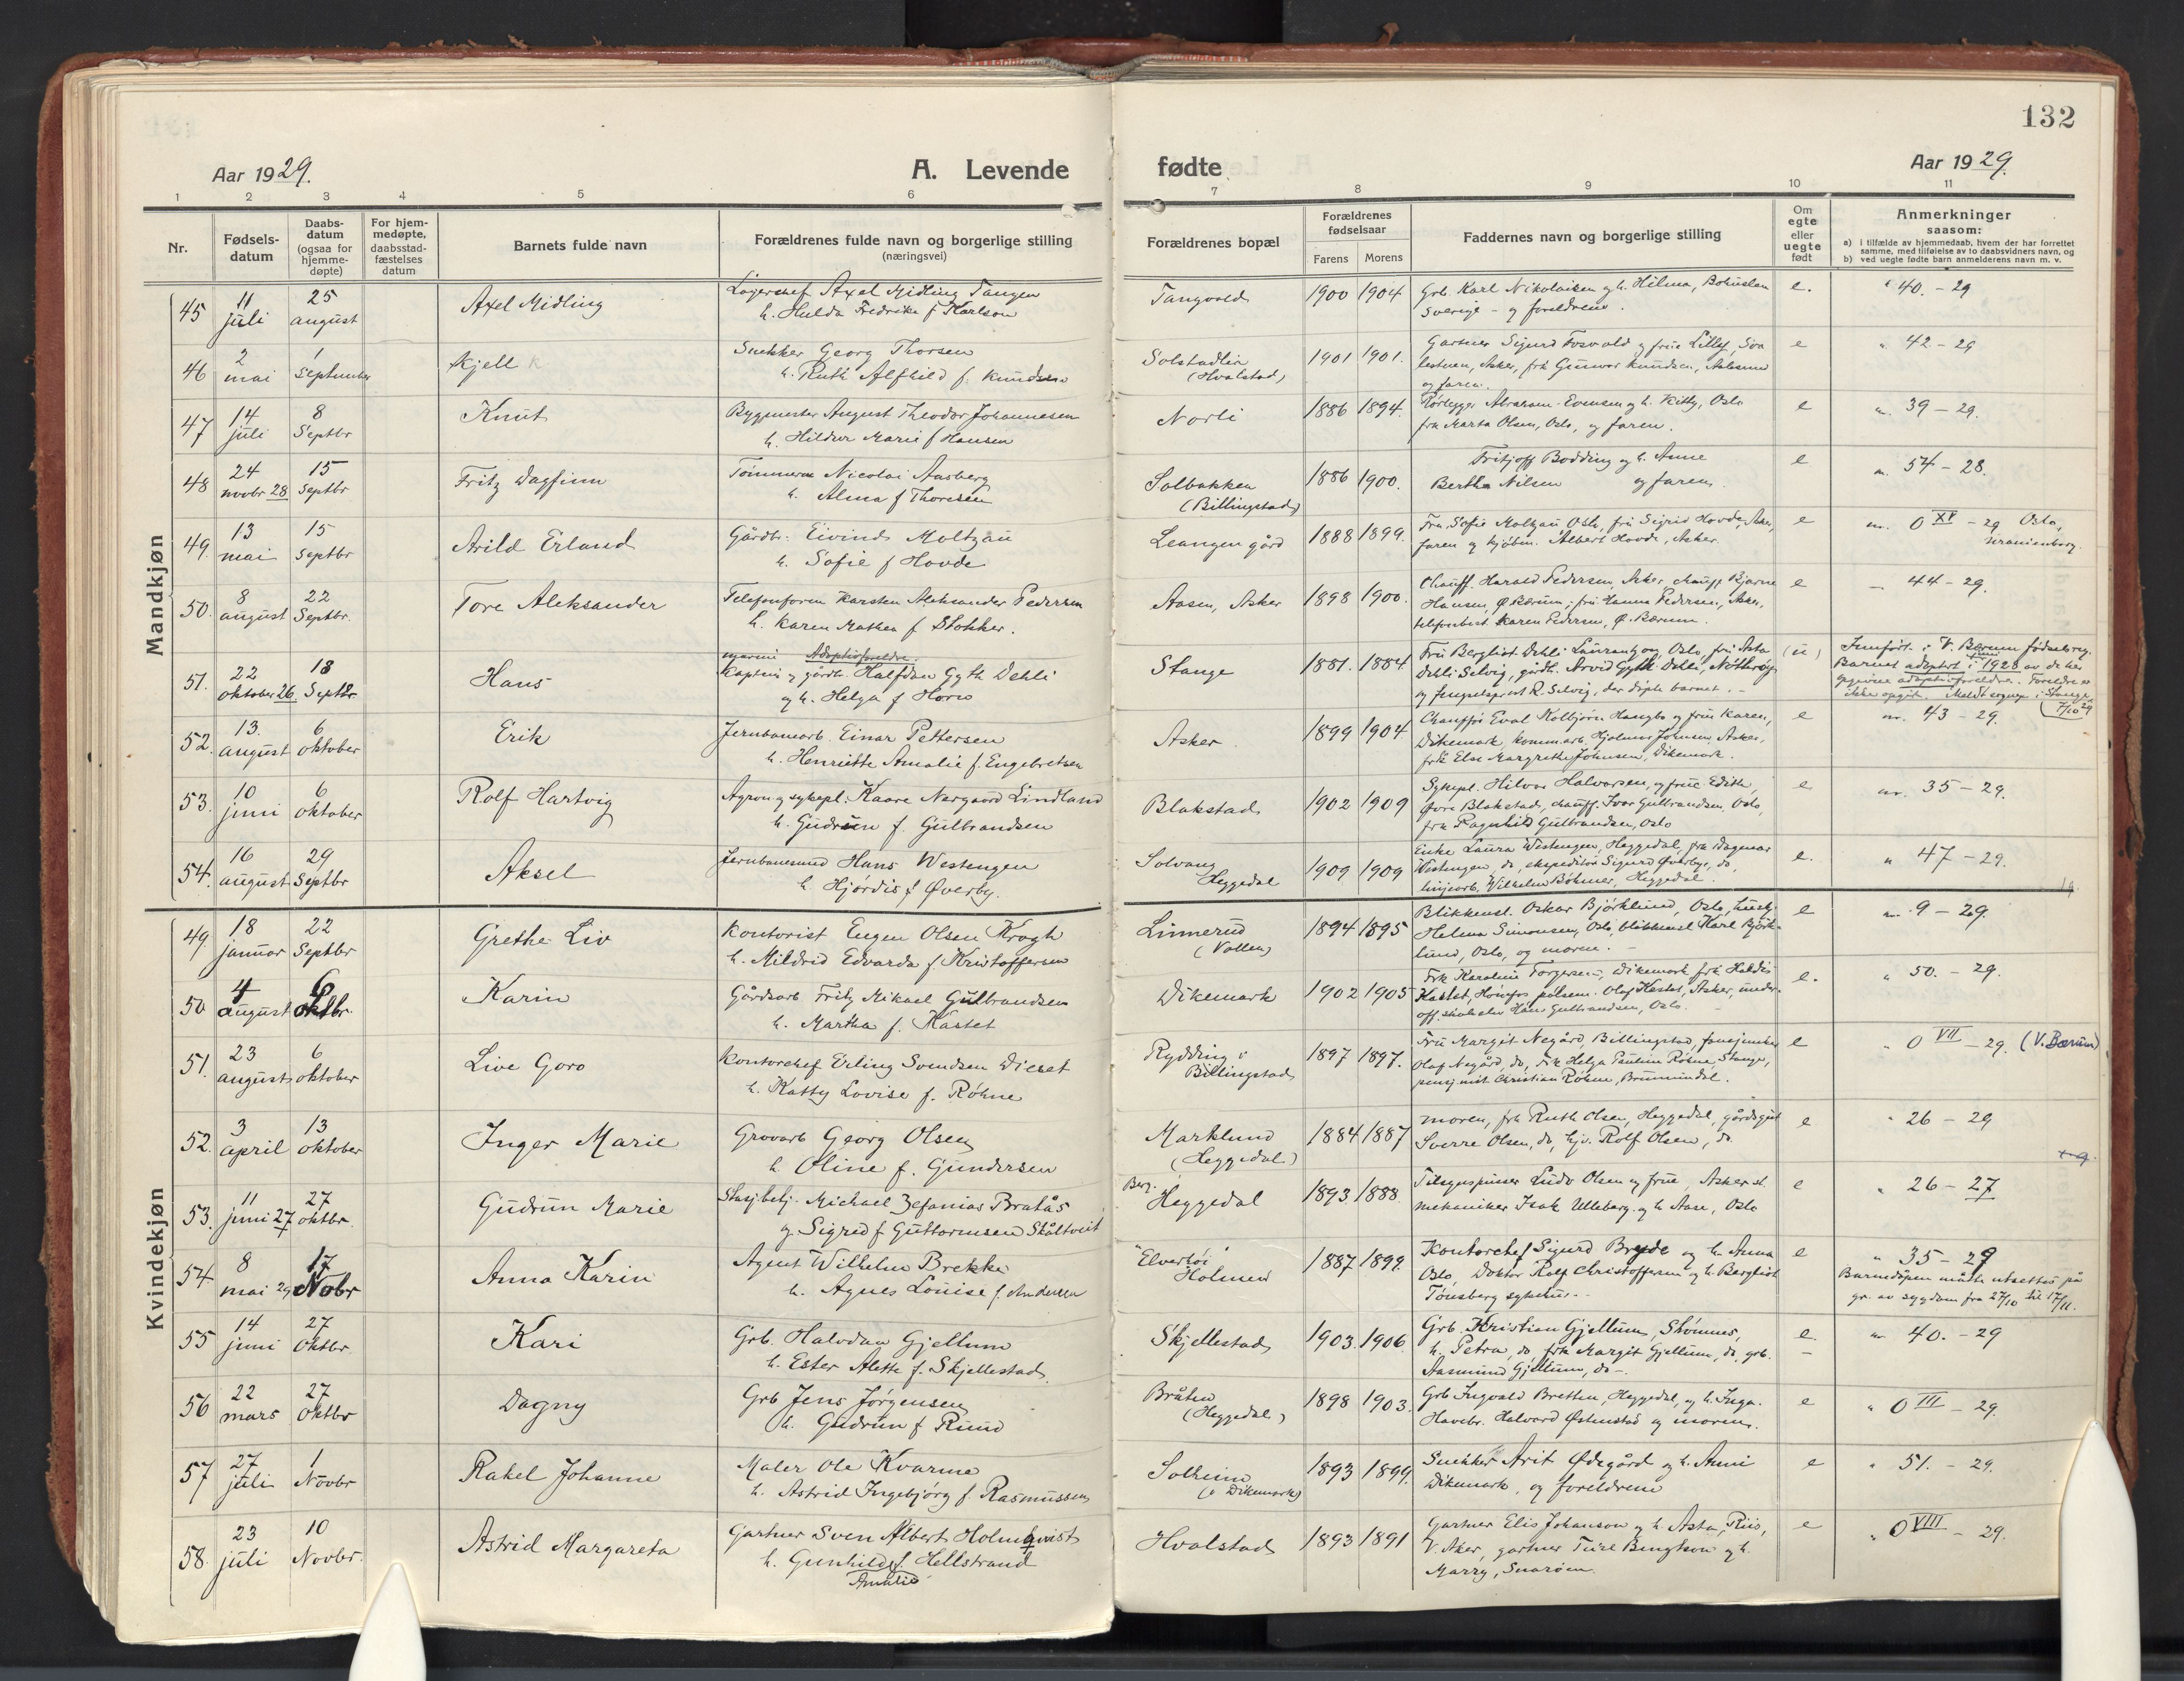 132
Aar 1929.
A. Levende fødte
Aar 1929.
1 2 3 4 5 6 7 8 9 10 11
Nr.
Fødsels-
datum
Daabs-
datum
(ogsaa for
hjemme-
døpte)
For hjem-
medøpte,
daabsstad-
fæstelses
datum
Barnets fulde navn
Forældrenes fulde navn og borgerlige stilling
(næringsvei)
Forældrenes bopæl
Forældrenes
fødselsaar
Farens Morens
Faddernes navn og borgerlige stilling
Om
egte
eller
uegte
født
Anmerkninger
saasom:
a) i tilfælde av hjemmedaab, hvem der har forrettet
samme, med tilføielse av to daabsvidners navn, og
b) ved uegte fødte barn anmelderens navn m. v.
Mandkjøn
45 11 juli 25 august Axel Midling
Lagerchef Axel Midling Tangen
h. Hulda Fredrika f. Karlson
Tangvold 1900 1904
Grb. Karl Nikolaisen og h. Hilma, Bohuslen
Sverige - og foreldrene.
e. 40. - 29
46 2 mai 1 September Kjell
Snekker Georg Thorsen
h. Ruth Alfhild f. Knudsen
Solstadlia
(Hvalstad)
1901 1901.
og faren.
e 42 - 29
47 14 juli 8 Septbr Knut
Bygmester August Theodor Johannesen
h. Hildur Marie f Hansen
Norli 1886 1894.
Rørlegger Abraham Evensen og h. Kitty, Oslo
fru Marta Olsen, Oslo, og faren.
e 39 - 29.
48 24 novbr 28 15 Septbr Fritz Dagfinn
Tømmerm Nicolai Aasberg
h. Alma f Thoresen
Solbakken
(Billingstad)
1886 1900.
Fritjoff Bodding og h. Anne
Bertha Nilsen og faren.
e 54 - 28.
49. 13 mai 15 Septbr Arild Erland
Gårdbr. Eivind Moltzau
h. Sofie f Hovde
Leangen gård 1888 1899.
Fru Sofie Moltzau Oslo, fru Sigrid Hovde, Asker,
faren og kjøbm. Albert Hovde, Asker.
e nr. 0 XV - 29 Oslo,
Uranienborg.
50. 8 august 22 Septbr. Tore Aleksander
Telefonform Karsten Aleksander Pedersen
h. Karen Mathea f Stokker.
Aasen, Asker 1898 1900.
Chauff. Harald Pedersen Asker, chauff Bjarne
Hansen, Ø. Bærum; fru Hanna Pedersen, Asker,
Karen Pedersen, Ø. Bærum.
e - 44 - 29.
51. 22 oktober 26 18 Septbr. Hans
marine Adoptivforeldre.
Kaptein og gårdbr. Halfdan Gyth Dehli
og h. Helga f Horn
Stange 1881. 1884
Fru Bergliot Dehli Laurantzon, Oslo, fru Asta
Dehli Selvig, gårdbr. Arvid Gyth Dehli, Nøtterøy
og fengselsprest R. Selvig, der døpte barnet. -
(u)
Innført i V. Bærum fødselsreg.
Barnet adoptert i juni 1928 av de her
oppgivne adoptivforeldre. Foreldre er
ikke opgit. Meldt sogneprest i Stange
7/10 29
52. 13. august 6 oktober Erik
Jernbanearb. Einar Pettersen
h. Henriette Amalie f. Engebretsen
Asker. 1899 1904
Chauffør Eval Kolbjørn Haugbo og frue Karen,
Dikemark, kommarb Hjalmar Johnsen Asker,
frk Else Margrethe Johnsen, Dikemark.
e nr. 43 - 29.
53. 10 juni 6 oktober Rolf Hartvig
Agron og sykepl. Kaare Nergaard Lindland
h. Gudrun f. Gulbrandsen
Blakstad 1902 1909
Sykepl. Hilvar Halvorsen, og frue Edith,
øvre Blakstad, chauff. Ivar Gulbrandsen Oslo,
frk Ragnhild Gulbrandsen, Oslo
e nr. 35 - 29.
54. 16 august 29 Septbr Aksel
Jernbanemand Hans Westengen
h. Hjørdis f Øverby.
Solvang
Heggedal
1909 1909
Enke Laura Westengen, Heggedal, frk Dagmar
Westengen, do, ekspeditør Sigurd Øverby, do,
linjearb. Wilhelm Böhmer, Heggedal.
e. 47 - 29.
Kvindekjøn
49. 18 januar 22 Septbr Grethe Liv
Kontorist Eugen Olsen Krogh
h. Mildrid Edvarda f. Kristoffersen
Linnerud
(Vollen)
1894 1895
Blikkensl. Oskar Bjørklund, Oslo,
Helena Simonsen, Oslo, blikkensl Karl Bjørk-
lund, Oslo, og moren. -
e 9 - 29.
50 4 august 6 oktbr. Karin
Gårdsarb Fritz Mikael Gulbrandsen
h. Martha f. Hastet
Dikemark 1902 1905
Frk Karoline Torgersen, Dikemark frk Haldis
Hastet, Hønefos, Olaf Hastet, Asker, under-
off. skole elev Hans Gulbrandsen, Oslo.
e. 50. - 29.
51. 23 august 6 oktober Live Goro
Kontorchef Erling Svendsen Dieset
h. Katty Lovise f. Røhne
Rydding i
Billingstad
1897 1897.
Fru Margit Negård, Billingstad, fanejunker
Olaf Negård, do, Frk Helga Pauline Røhne, Stange,
Christian Røhne, Brumunddal.
e 0 VII - 29. (V. Bærum)
52. 3 april 13 oktober Inger Marie
Grovarb Georg Olsen
h. Oline f. Gundersen
Marklund
(Heggedal)
1884 1887
moren, frk Ruth Olsen, Heggedal, gårdsgut
Sverre Olsen, do, hjv. Rolf Olsen, do.
e 26 - 29
53. 11 juni 27 27 oktbr. Gudrun Marie
Stasjbetj. Michael Zefanias Bratås
og Sigred f Guttormsen Skåltveit
Berg.
Heggedal
1893. 1888.
Ludv Olsen og frue, Asker st.
mekaniker Isak Ulleberg og h Aase, Oslo
e 26 - 27
54 8 mai 29 17 Nobr Anna Karin
Agent Wilhelm Brekke
h. Agnes Louise f. Andersen
"Elverhøi"
Holmen
1887 1899.
Kontorchef Sigurd Bryde og h. Anna
Oslo, Doktor Rolf Christoffersen og h. Bergliot
Tønsberg sykehus. -
e 35 - 29
Barnedåpen måtte utsettes på
gr. av sygdom fra 27/10 til 17/11.
55 14 juni 27 Oktbr. Kari
Grb. Halvdan Gjellum
h. Ester Alette f. Skjellestad.
Skjellestad 1903. 1906.
Grb. Kristian Gjellum, Stømnes,
h. Petra, do frk Margit Gjellum, do, grb.
Aasmund Gjellum, do -
e. 40. - 29
56 22 mars 27 Oktbr Dagny
Grb Jens Jørgensen
h. Gudrun f Ruud
Bråten
(Heggedal)
1898 1903.
Grb Ingvald Brethen, Heggedal, og h. Inga.
Havebr. Halvard Østenstad og moren.
e 0 III - 29.
57 27 juli 1 Novbr Rakel Johanne
Maler Ole Kvarme
h. Astrid Ingebjørg f. Rasmussen
Solheim
(v Dikemark)
1893 1899.
Snekker Arit Ødegård og h. Anni
Dikemark, og foreldrene
e 51. - 29.
58. 23 juli 10 Novbr. Astrid Margareta
Gartner Sven Albert Holmqvist
h. Gunhild f. Hellstrand
Amalie
Hvalstad 1893 1891
Gartner Elis Johanson og h. Asta, Riis,
V. Aker, gartner Ture Bengtson og h.
Marry, Snarøen.
e 0 VIII - 29.